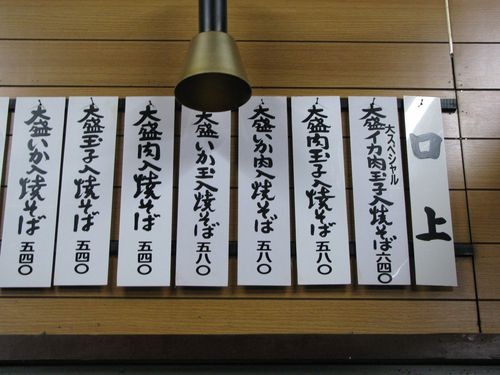 口上
大スペシャル
大盛イカ肉玉子入焼そば 六四〇
大盛肉玉子入焼そば 五八〇
大盛いか肉入焼そば 五八〇
大盛いか玉入焼そば 五八〇
大盛肉入焼そば 五四〇
大盛玉子入焼そば 五四〇
大盛いか入焼そば 五四〇